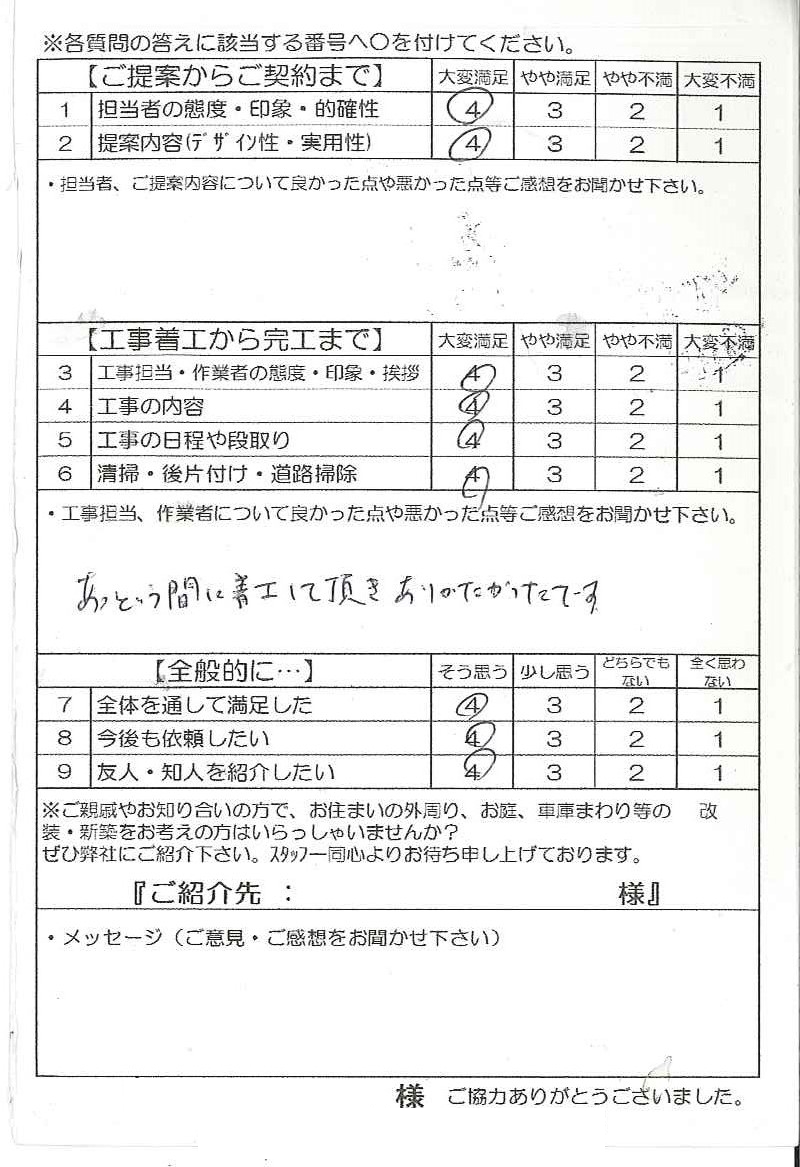 ※各質問の答えに該当する番号へ〇を付けてください。
【ご提案からご契約まで】 大変満足 やや満足 やや不満 大変不満
1 担当者の態度・印象・的確性 4 3 2 1
2 提案内容(ﾃﾞｻﾞｲﾝ性・実用性) 4 3 2 1
・担当者、ご提案内容について良かった点や悪かった点等ご感想をお聞かせ下さい。
【工事着工から完工まで】 大変満足 やや満足 やや不満 大変不満
3 工事担当・作業者の態度・印象・挨拶 4 3 2 1
4 工事の内容 4 3 2 1
5 工事の日程や段取り 4 3 2 1
6 清掃・後片付け・道路掃除 4 3 2 1
・工事担当、作業者について良かった点や悪かった点等ご感想をお聞かせ下さい。
あっという間に着工して頂きありがたかったでーす
【全般的に…】 そう思う 少し思う どちらでもない 全く思わない
7 全体を通して満足した 4 3 2 1
8 今後も依頼したい 4 3 2 1
9 友人・知人を紹介したい 4 3 2 1
※ご親戚やお知り合いの方で、お住まいの外周り、お庭、車庫まわり等の 改
装・新築をお考えの方はいらっしゃいませんか？
ぜひ弊社にご紹介下さい。ｽﾀｯﾌ一同心よりお待ち申し上げております。
『ご紹介先 ： 様』
・メッセージ（ご意見・ご感想をお聞かせ下さい）
様 ご協力ありがとうございました。